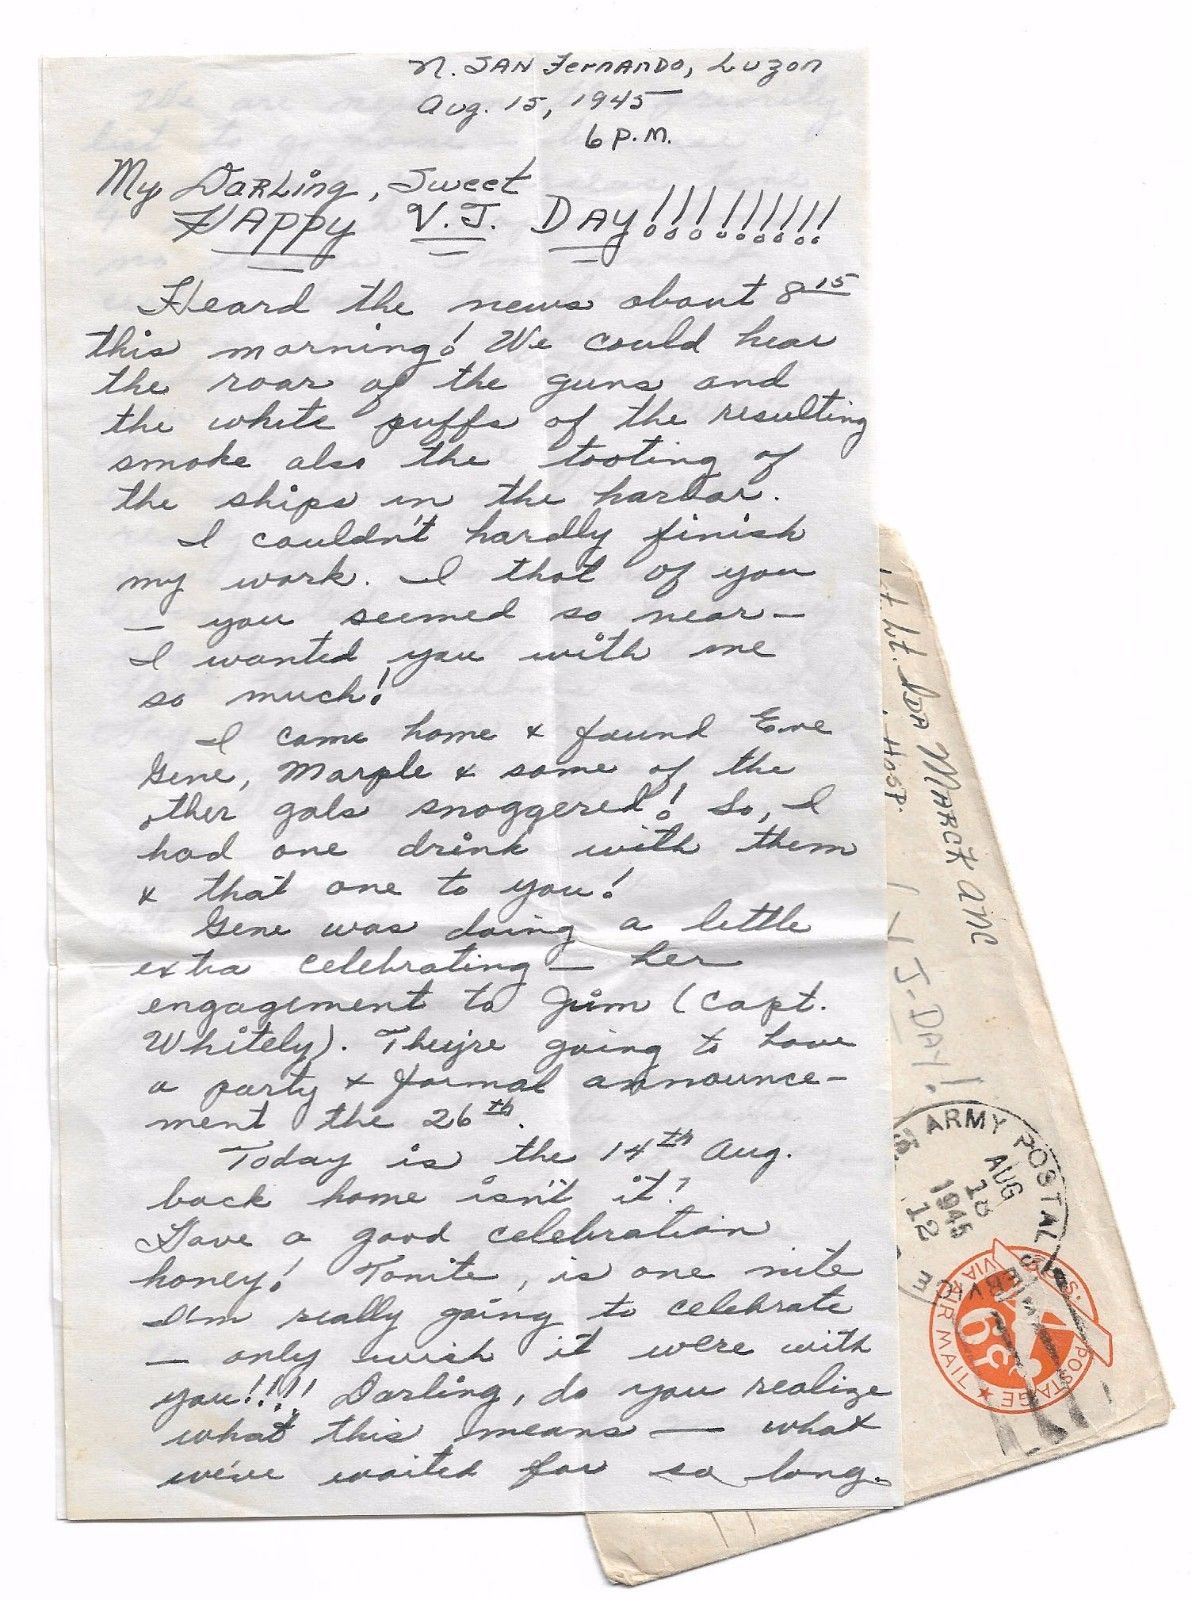 N. SAN Fernando, Luzon
Aug. 15, 1945
6 P.M.
My Darling, Sweet
HAPPY V.J. DAY!!!!!!!!!
Heard the news about 8 15
this morning! We could hear
the roar of the guns and
the white puffs of the resulting
smoke also the tooting of
the ships in the harbor.
I couldn't hardly finish
my work. I that of you
— you seemed so near —
I wanted you with me
so much!
I came home & found Eve
Gene, Marple & some of the
other gals snoggered! So, I
had one drink with them
& that one to you!
Gene was doing a little
extra celebrating — her
engagement to Jim (Capt.
Whitely). They're going to have
a party & formal announce-
ment the 26th.
Today is the 14th Aug.
back home isn't it?
Have a good celebration
honey! Tonite, is one nite
I'm really going to celebrate
— only wish it were with
you!!!! Darling, do you realize
what this means — what
we've waited for so long.
1st Lt. Ida March ANC
Hosp.
V J-DAY!
ARMY POSTAL SERVICE
AUG
18
1945
12
U.S. POSTAGE
VIA AIR MAIL
6¢